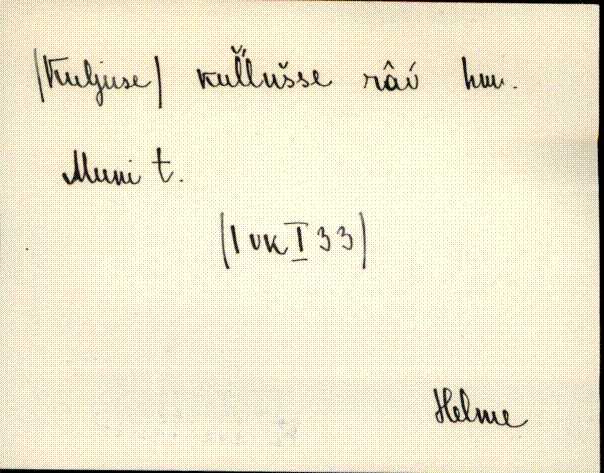 /Kuljuse/ kull̆ušse râú hm.
Muni t.
(I vk I 33)
Helme